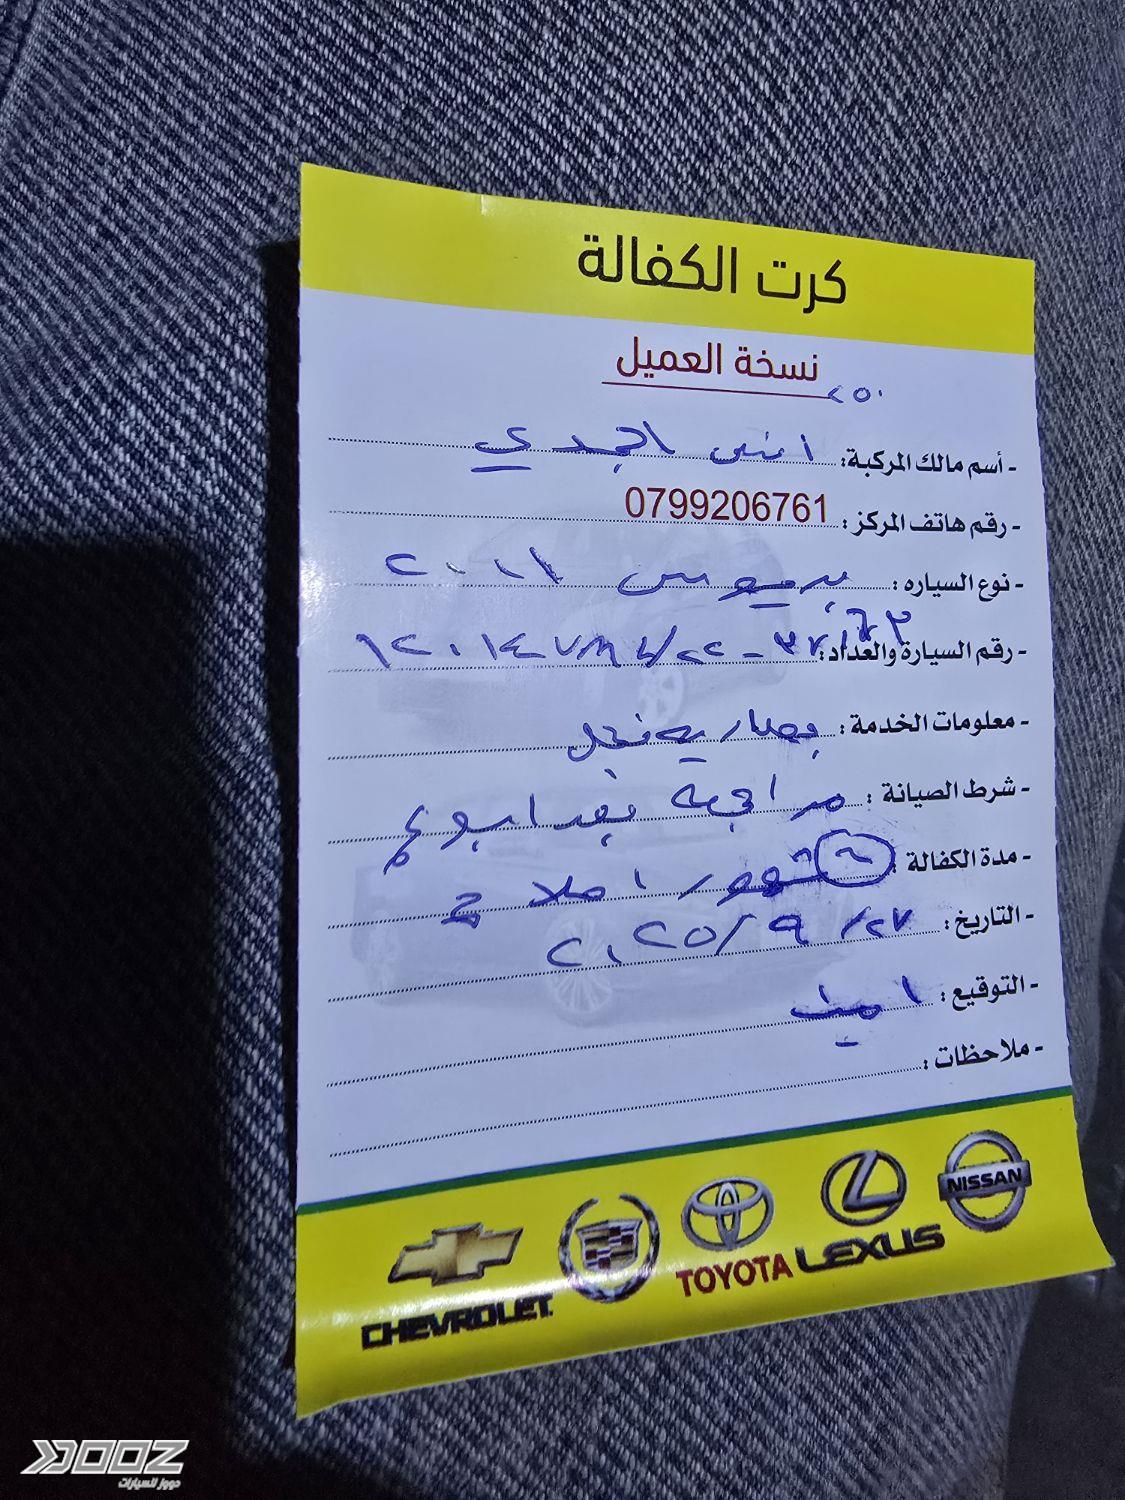 كرت الكفالة
نسخة العميل
٢٥٠
- أسم مالك المركبة: انس
- رقم هاتف المركز: 0799206761
- نوع السياره: بريوس ٢٠١١
- رقم السيارة والعداد:
- معلومات الخدمة: بطاريه
- شرط الصيانة: مراجعة بعد اسبوع
- مدة الكفالة: ٦ شهور اصلاح
- التاريخ: ٢٠٢٥/٩/٢٧
- التوقيع:
- ملاحظات:
CHEVROLET
TOYOTA
LEXUS
NISSAN
DOOZ
دووز للسيارات